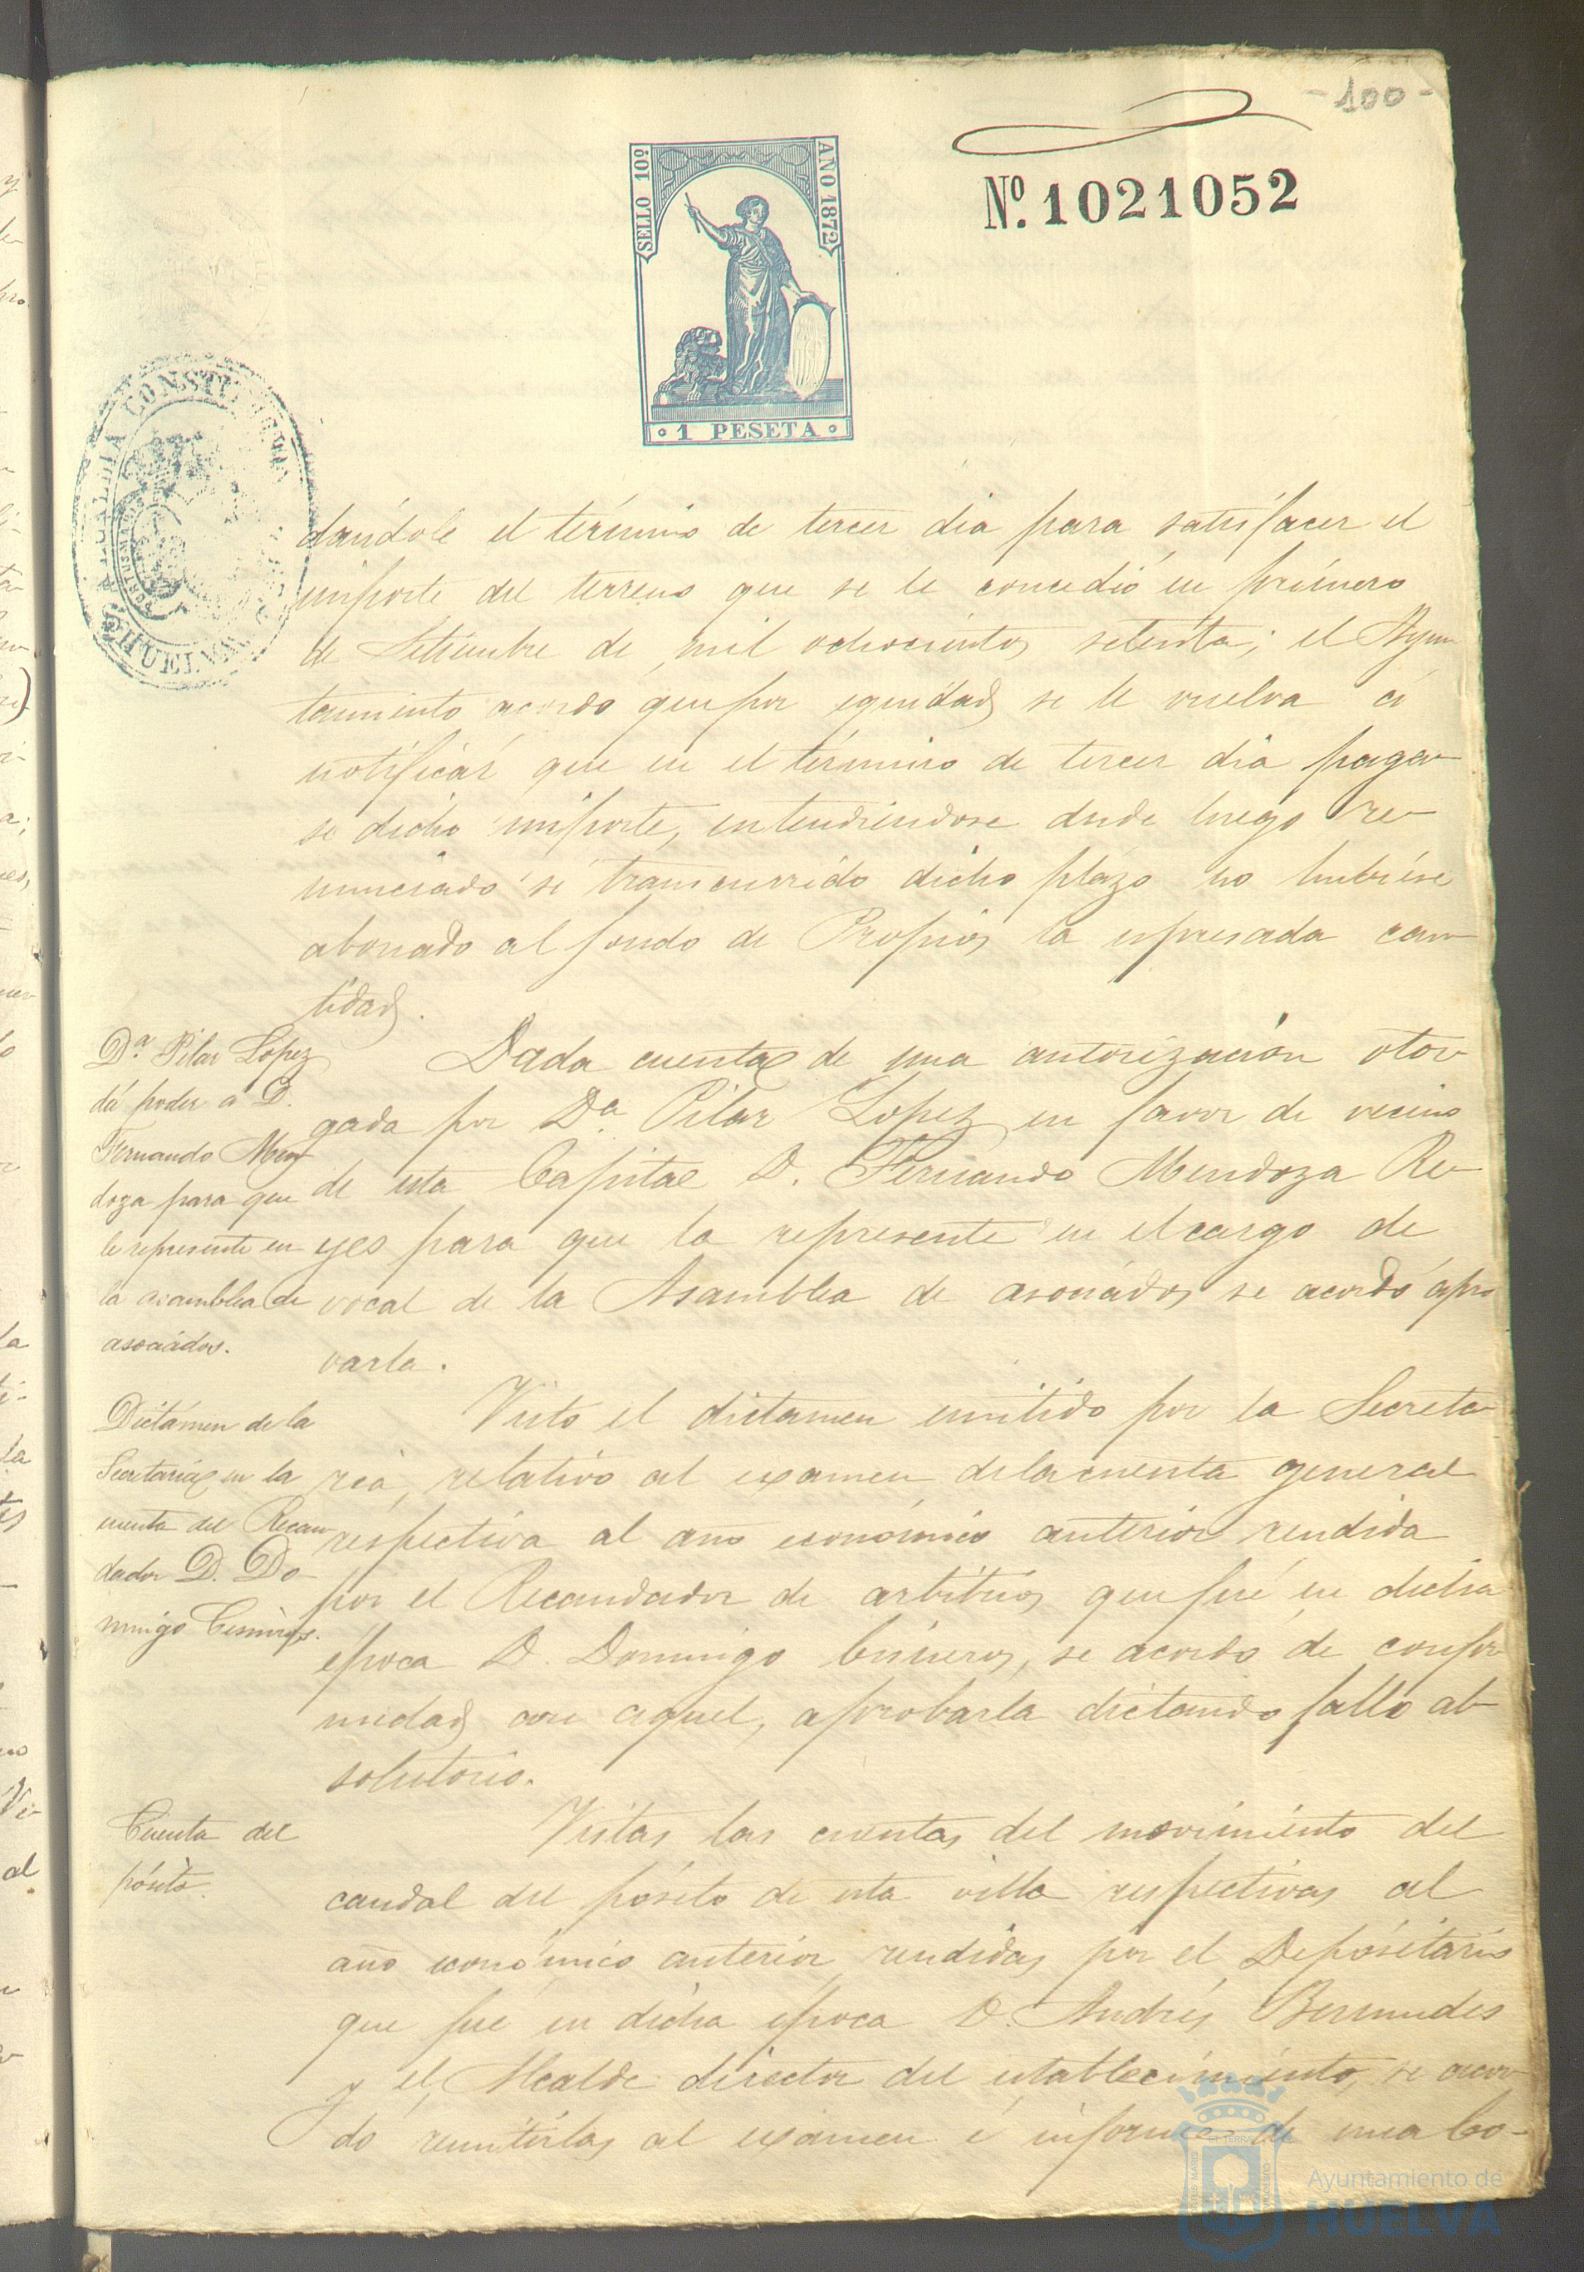 - 100 -
SELLO 10º
AÑO 1872
Nº. 1021052
1 PESETA
ALCALDIA CONSTITUCIONAL
HUELVA
dandole el término de tercer dia para satisfacer el
importe del terreno que se le concedió en primero
de Setiembre de mil ochocientos setenta; el Ayun
tamiento acordó que por equidad se le vuelva á
notificar que en el término de tercer dia pague
se dicho importe, entendiendose desde luego re-
nunciado si transcurrido dicho plazo no hubiese
abonado al fondo de Propios la espresada can
tidad.
Dª. Pilar Lopez
dá poder á D.
Fernando Men
doza para que
le represente en
la asamblea de
asociados.
Dada cuenta de una autorización otor
gada por Dª. Pilar Lopez en favor de vecino
de esta Capital D. Fernando Mendoza Re-
yes para que la represente en el cargo de
vocal de la Asamblea de asociados, se acordó apro
varla.
Dictámen de la
Secretaría en la
cuenta del Recau
dador D. Do-
mingo Cisneros.
Visto el dictamen emitido por la Secreta
ria, relativo al examen de la cuenta general
respectiva al año económico anterior rendida
por el Recaudador de arbitrios que fué en dicha
época D. Domingo Cisneros, se acordó de confor
midad con aquel, aprobarla dictando fallo ab-
solutorio.
Cuenta del
pósito.
Vistas las cuentas del movimiento del
caudal del pósito de esta villa respectivas al
año económico anterior rendidas por el Depositario
que fué en dicha época D. Andrés Bermudes
y el Alcalde director del establecimiento, se acor
dó remitirlas al examen é informe de una Co-
Ayuntamiento de
HUELVA